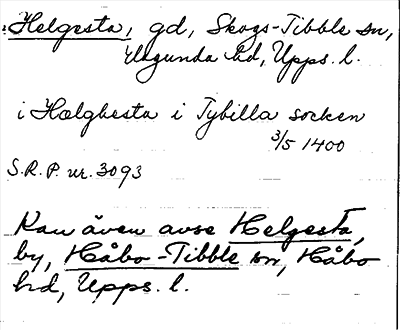 Helgesta, gd, Skogs-Tibble sn,
Hagunda hd, Upps. l.
i Hælghesta i Tybilla socken
3/5 1400
S.R.P. nr. 3093
Kan även avse Helgesta,
by, Håbo-Tibble sn, Håbo
hd, Upps. l.